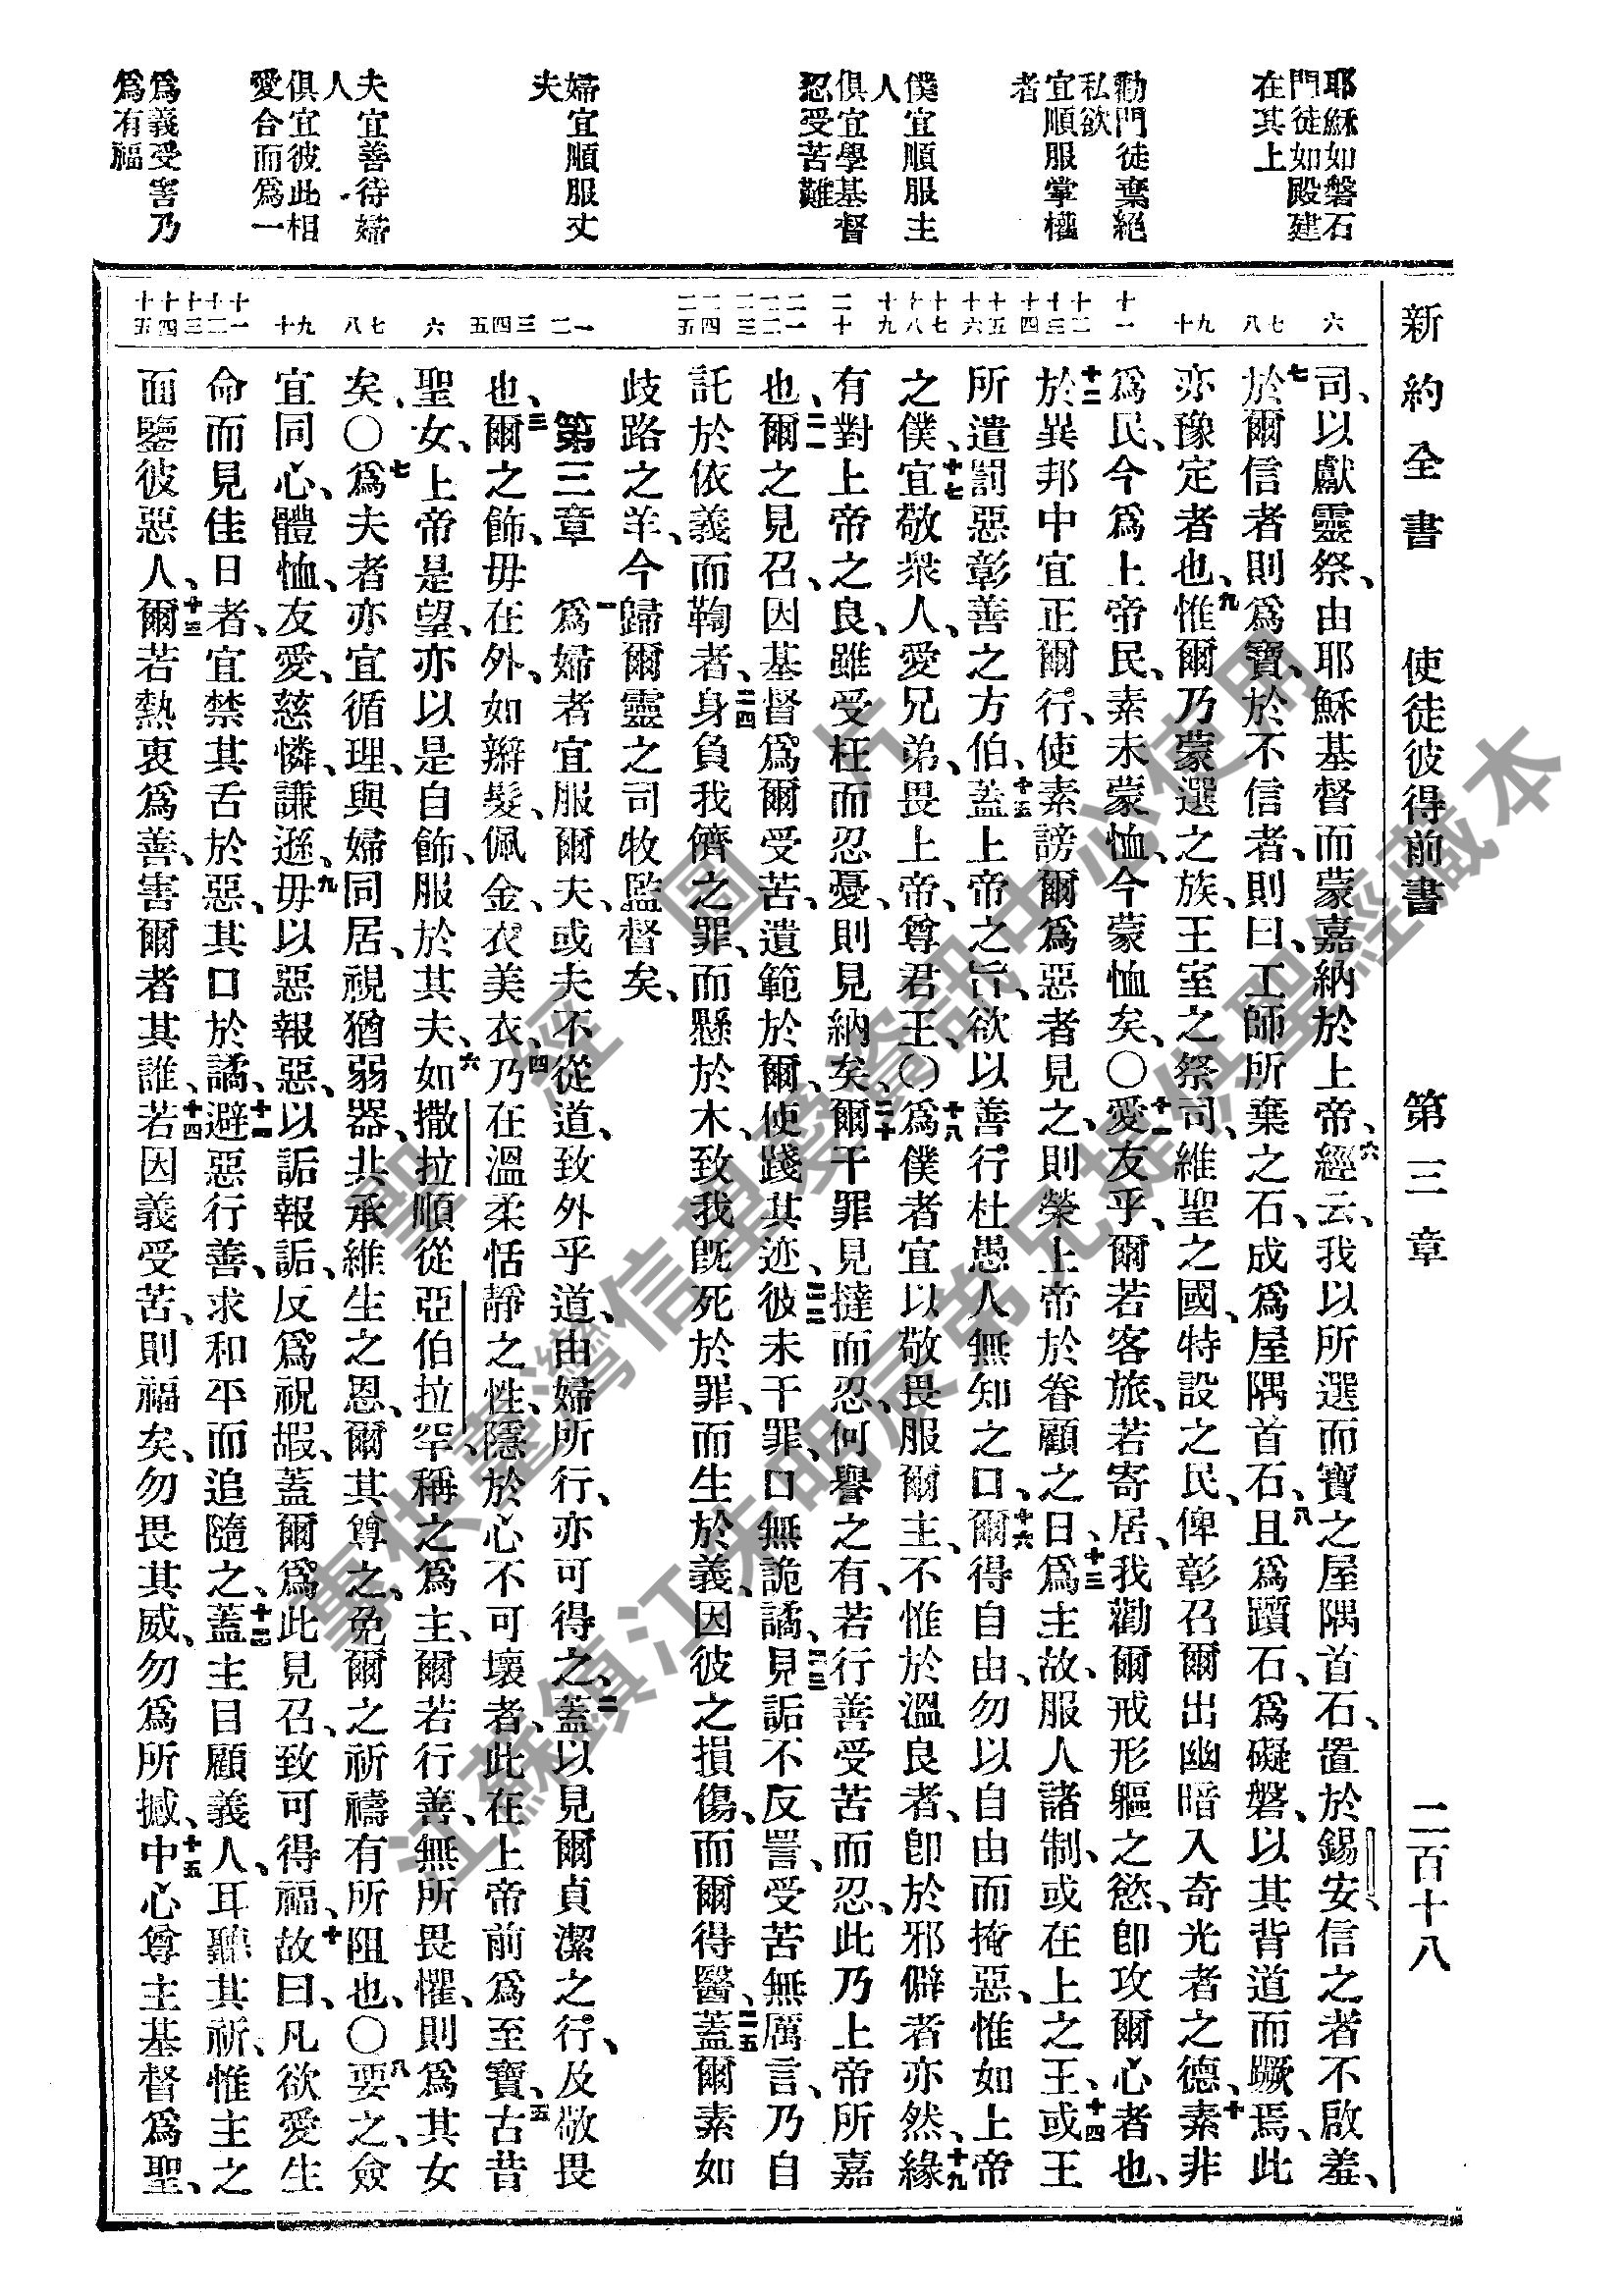 新約全書 使徒彼得前書 第三章 二百十八
耶穌如磐石
門徒如殿建
在其上
勸門徒棄絕
私欲
宜順服掌權
者
僕宜順服主
人
俱宜學基督
忍受苦難
婦宜順服丈
夫
夫宜善待婦
人
俱宜彼此相
愛合而爲一
爲義受害乃
爲有福
六
七
八
九
十
十一
十二
十三
十四
十五
十六
十七
十八
十九
二十
二一
二二
二三
二四
二五
一
二
三
四
五
六
七
八
九
十
十一
十二
十三
十四
十五
司、以獻靈祭、由耶穌基督而蒙嘉納於上帝、六經云、我以所選而寶之屋隅首石、置於錫安、信之者不啟羞、
七於爾信者則爲寶、於不信者、則曰、工師所棄之石、成爲屋隅首石、八且爲躓石、爲礙磐、以其背道而蹶焉、此
亦豫定者也、九惟爾乃蒙選之族、王室之祭司、維聖之國、特設之民、俾彰召爾出幽暗入奇光者之德、十素非
爲民、今爲上帝民、素未蒙恤、今蒙恤矣、〇十一愛友乎、爾若客旅、若寄居、我勸爾戒形軀之慾、卽攻爾心者也、
十二於異邦中宜正爾行、使素謗爾爲惡者見之、則榮上帝於眷顧之日、十三爲主故、服人諸制、或在上之王、十四或王
所遣罰惡彰善之方伯、十五蓋上帝之旨、欲以善行杜愚人無知之口、十六爾得自由、勿以自由而掩惡、惟如上帝
之僕、十七宜敬衆人、愛兄弟、畏上帝、尊君王、〇十八爲僕者宜以敬畏服爾主、不惟於溫良者、卽於邪僻者亦然、十九緣
有對上帝之良、雖受枉而忍憂、則見納矣、二十爾干罪見撻而忍、何譽之有、若行善受苦而忍、此乃上帝所嘉
也、二一爾之見召、因基督爲爾受苦、遺範於爾、使踐其迹、二二彼未干罪、口無詭譎、二三見詬不反詈、受苦無厲言、乃自
託於依義而鞫者、二四身負我儕之罪、而懸於木、致我旣死於罪、而生於義、因彼之損傷、而爾得醫、二五蓋爾素如
歧路之羊、今歸爾靈之司牧監督矣、
第三章 一爲婦者宜服爾夫、或夫不從道、致外乎道、由婦所行、亦可得之、二蓋以見爾貞潔之行、及敬畏
也、三爾之飾、毋在外、如辮髮、佩金、衣美衣、四乃在溫柔恬靜之性、隱於心不可壞者、此在上帝前爲至寶、五古昔
聖女、上帝是望、亦以是自飾、服於其夫、六如撒拉順從亞伯拉罕、稱之爲主、爾若行善、無所畏懼、則爲其女
矣、〇七爲夫者亦宜循理、與婦同居、視猶弱器、共承維生之恩、爾其尊之、免爾之祈禱有所阻也、〇八要之、僉
宜同心、體恤、友愛、慈憐、謙遜、九毋以惡報惡、以詬報詬、反爲祝嘏、蓋爾爲此見召、致可得福、十故曰、凡欲愛生
命而見佳日者、宜禁其舌於惡、其口於譎、十一避惡行善、求和平而追隨之、十二蓋主目顧義人、耳聽其祈、惟主之
面鑒彼惡人、十三爾若熱衷爲善、害爾者其誰、十四若因義受苦、則福矣、勿畏其威、勿爲所撼、十五中心尊主基督爲聖、
聖經圖片
專供臺灣信望愛資訊中心使用
江蘇鎮江朱明辰弟兄提供聖經藏本